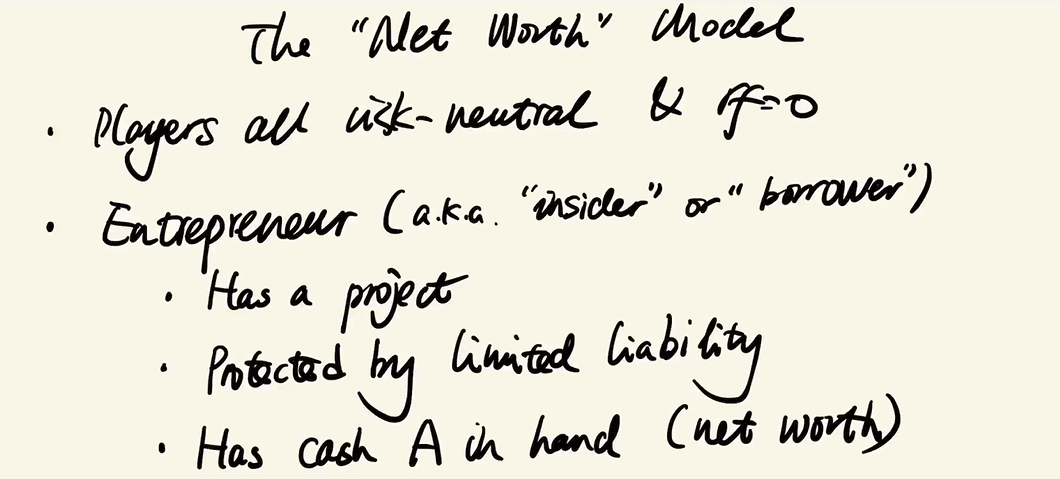 The "Net Worth" Model
• Players all risk-neutral & rf=0
• Entrepreneur (a.k.a. "insider" or "borrower")
• Has a project
• Protected by limited liability
• Has cash A in hand (net worth)